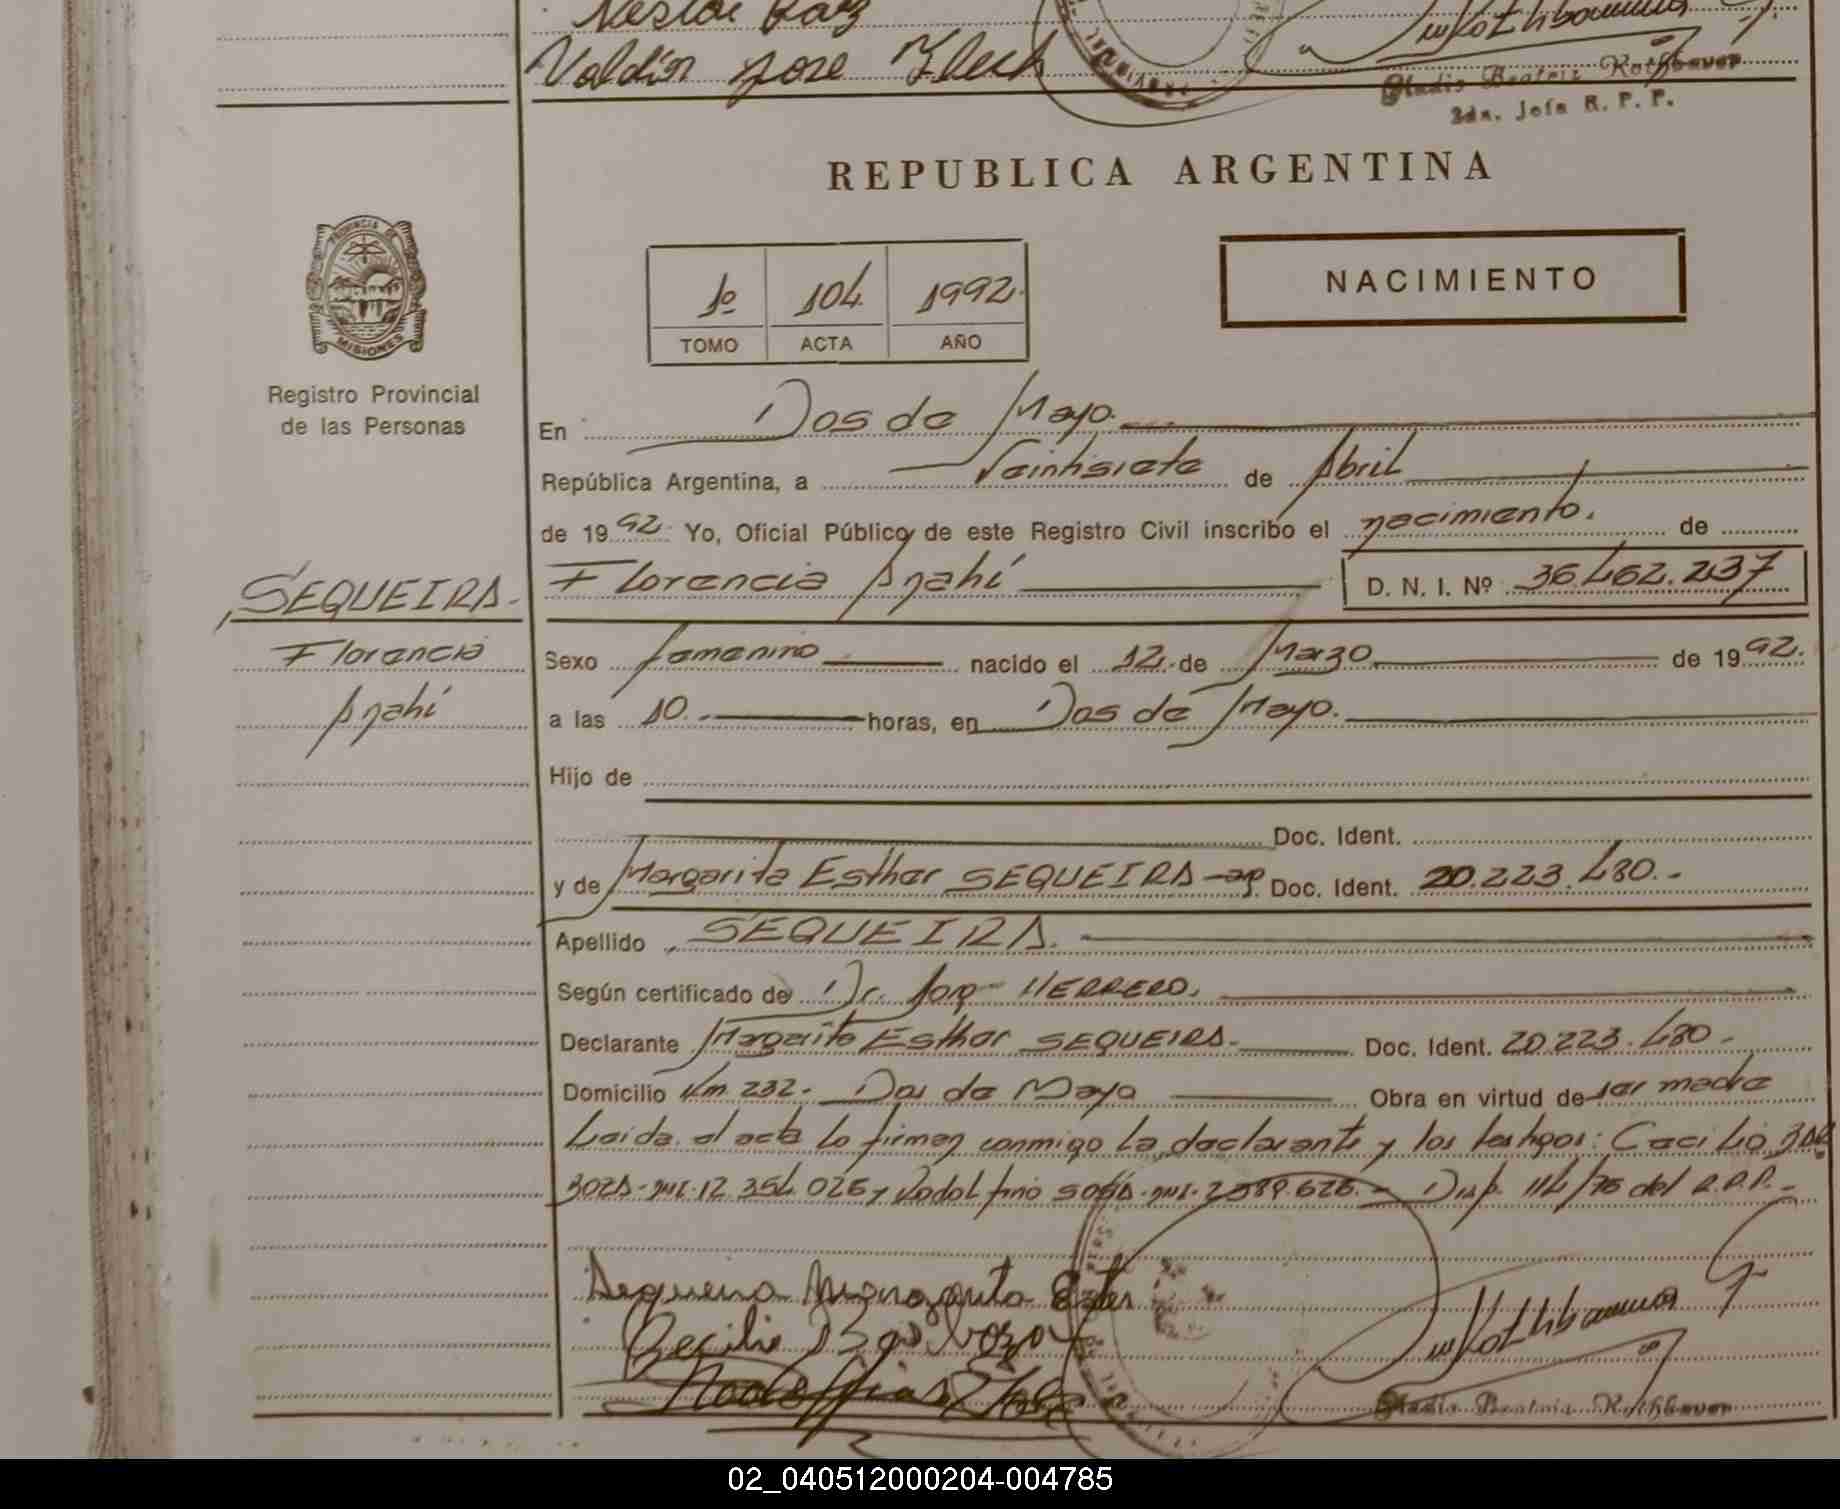 Nestor Paz
Valdir jose Flech
Gladis Beatriz Rothbauer
2da. Jefa R. P. P.
REPUBLICA ARGENTINA
PROVINCIA DE
MISIONES
Registro Provincial
de las Personas
1º 104. 1992.
TOMO ACTA AÑO
NACIMIENTO
En Dos de Mayo.
República Argentina, a Veintisiete de Abril
de 1992. Yo, Oficial Público de este Registro Civil inscribo el nacimiento. de
SEQUEIRA.
Florencia
Anahí
Florencia Anahí D. N. I. Nº 36.462.237
Sexo femenino nacido el 12. de Marzo de 1992.
a las 10. horas, en Dos de Mayo.
Hijo de
Doc. Ident.
y de Margarita Esther SEQUEIRA Doc. Ident. 20.223.480.-
Apellido SEQUEIRA.
Según certificado de Dr. HERRERO.
Declarante Margarita Esther SEQUEIRA.- Doc. Ident. 20.223.480.-
Domicilio Km 232. Dos de Mayo Obra en virtud de ser madre
Leída el acta lo firman conmigo la declarante y los testigos: Cecilio
y SOSA Disp. 114/76 del R.P.P.-
Sequeira Margarita Ester
Gladis Beatriz Rothbauer
02_040512000204-004785